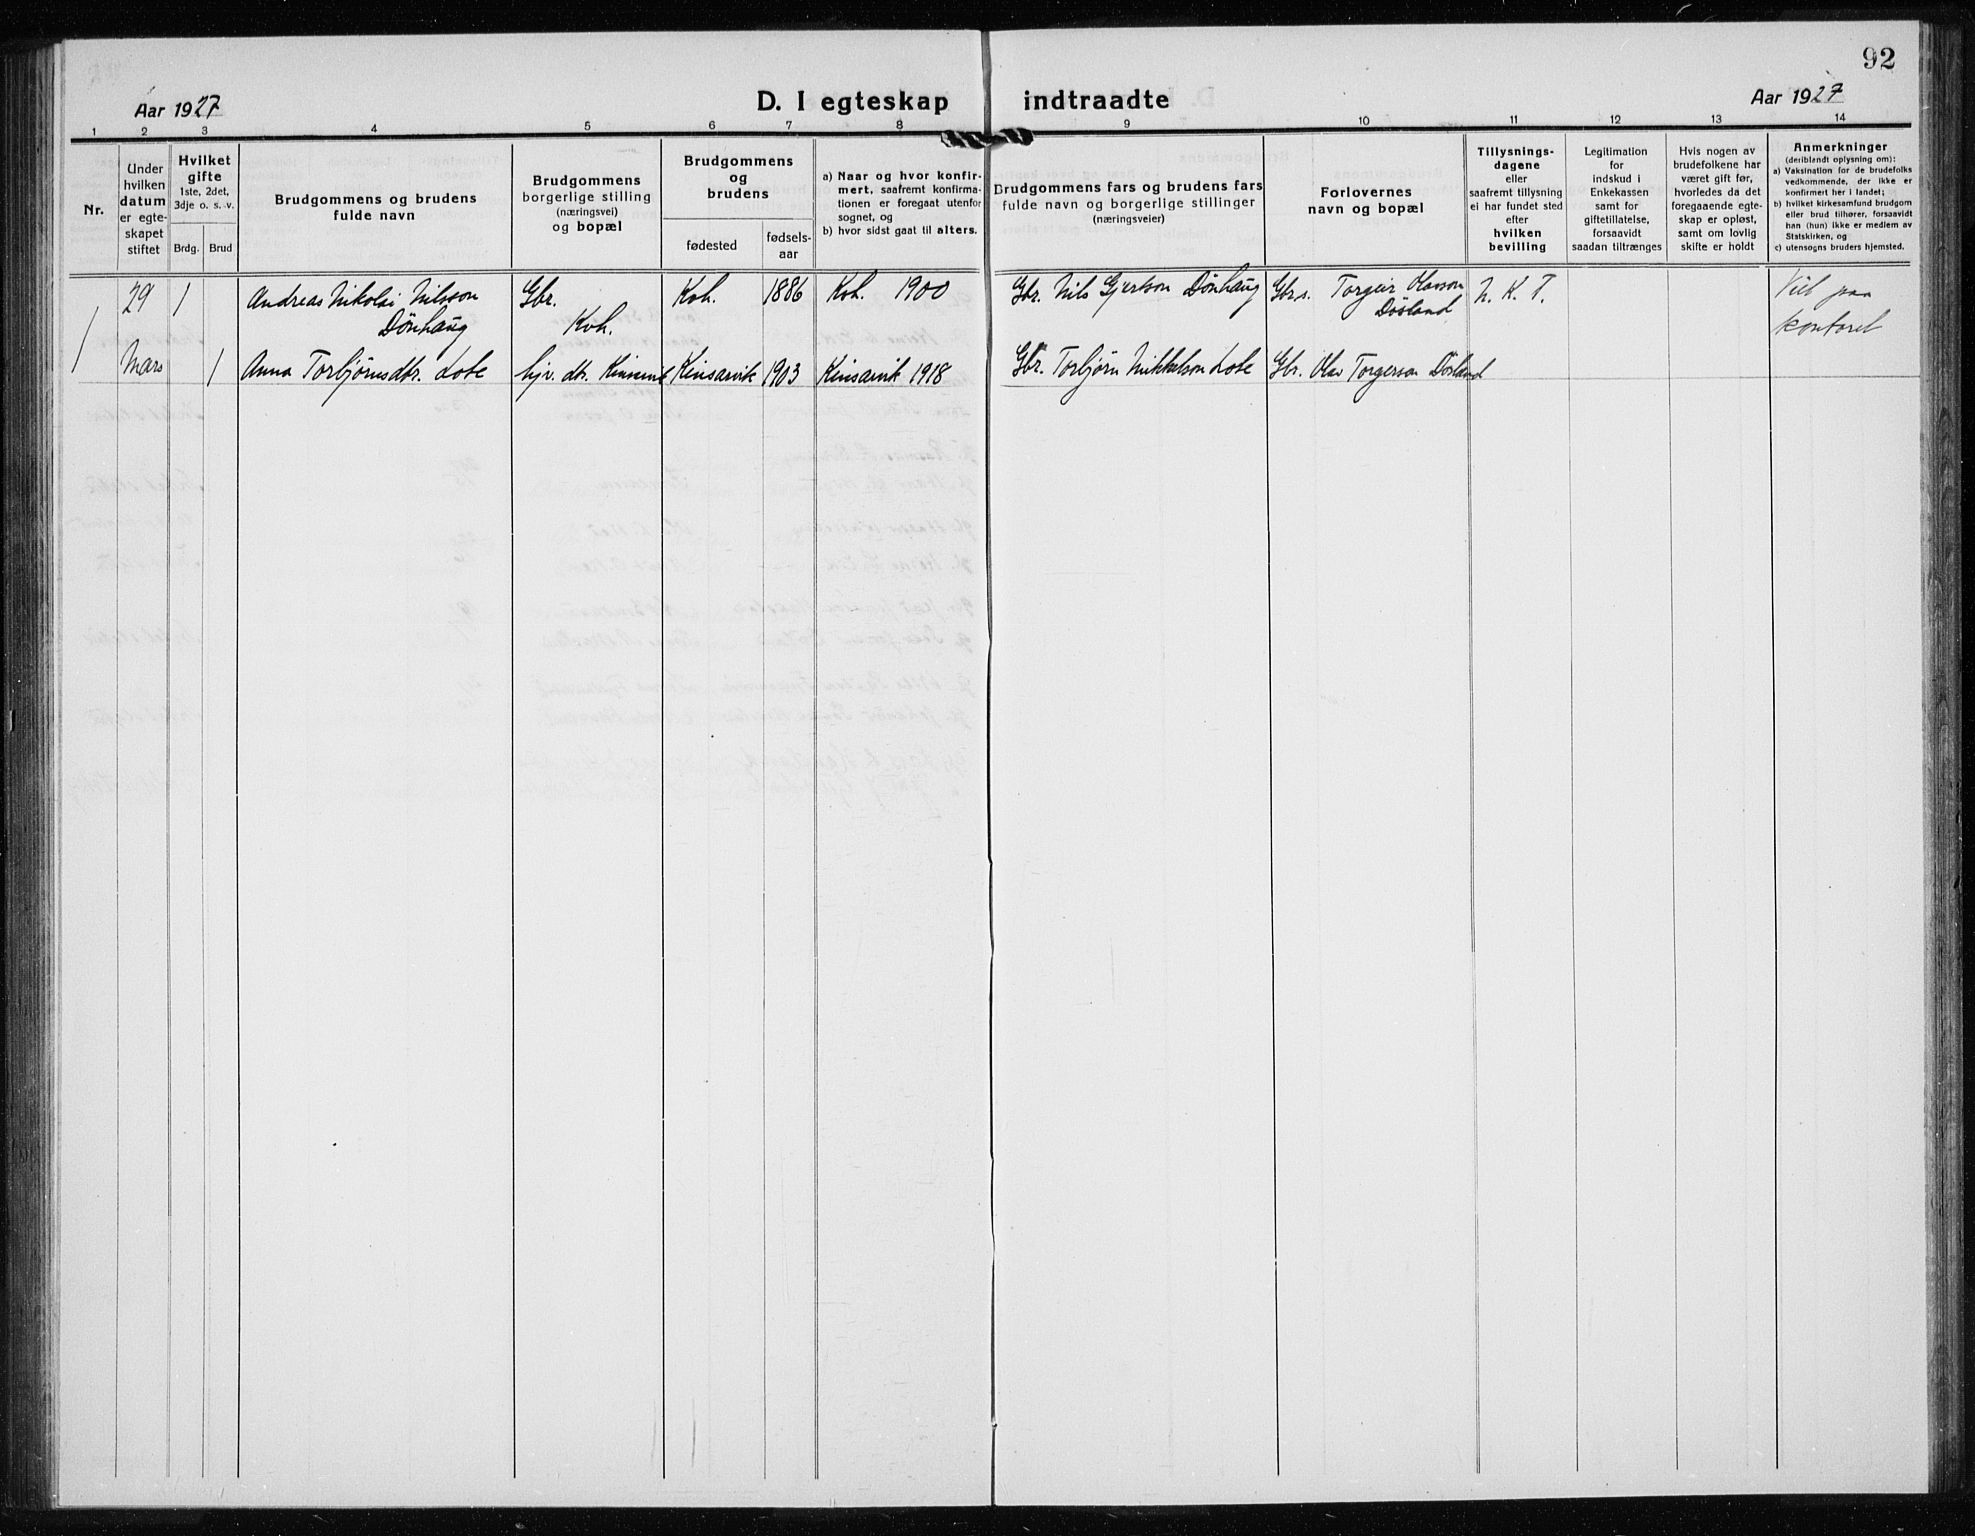 92
Aar 1927
D. I egteskap indtraadte
Aar 1927
1 2 3 4 5 6 7 8 9 10 11 12 13 14
Nr.
Under
hvilken
datum
er egte-
skapet
stiftet
Hvilket
gifte
1ste, 2det,
3dje o. s. v.
Brdg. Brud
Brudgommens og brudens
fulde navn
Brudgommens
borgerlige stilling
(næringsvei)
og bopæl
Brudgommens
og
brudens
fødested
fødsels-
aar
a) Naar og hvor konfir-
mert, saafremt konfirma-
tionen er foregaat utenfor
sognet, og
b) hvor sidst gaat til alters.
Brudgommens fars og brudens fars
fulde navn og borgerlige stillinger
(næringsveier)
Forlovernes
navn og bopæl
Tillysnings-
dagene
eller
saafremt tillysning
ei har fundet sted
efter
hvilken
bevilling
Legitimation
for
indskud i
Enkekassen
samt for
giftetillatelse,
forsaavidt
saadan tiltrænges
Hvis nogen av
brudefolkene har
været gift før,
hvorledes da det
foregaaende egte-
skap er opløst,
samt om lovlig
skifte er holdt
Anmerkninger
(deriblandt oplysning om):
a) Vaksination for de brudefolks
vedkommende, der ikke er
konfirmert her i landet;
b) hvilket kirkesamfund brudgom
eller brud tilhører, forsaavidt
han (hun) ikke er medlem av
Statskirken, og
c) utensogns bruders hjemsted.
1
29 1 Andreas Nikolai Nilsson Gbr. Kvh. 1886 Kvh. 1900 Gbr. Nils Gjertson Dønhaug Gbr.s. Torgeir Olavson N. K. T. Viet paa
Dønhaug Kvh. Døsland kontoret
Mars 1 Anna Torbjørnsdtr. Lote hjv. dtr. Kinsarvik 1903 Kinsarvik 1918 Gbr. Torbjørn Mikkelson Lote Gbr. Olav Torgerson Døsland